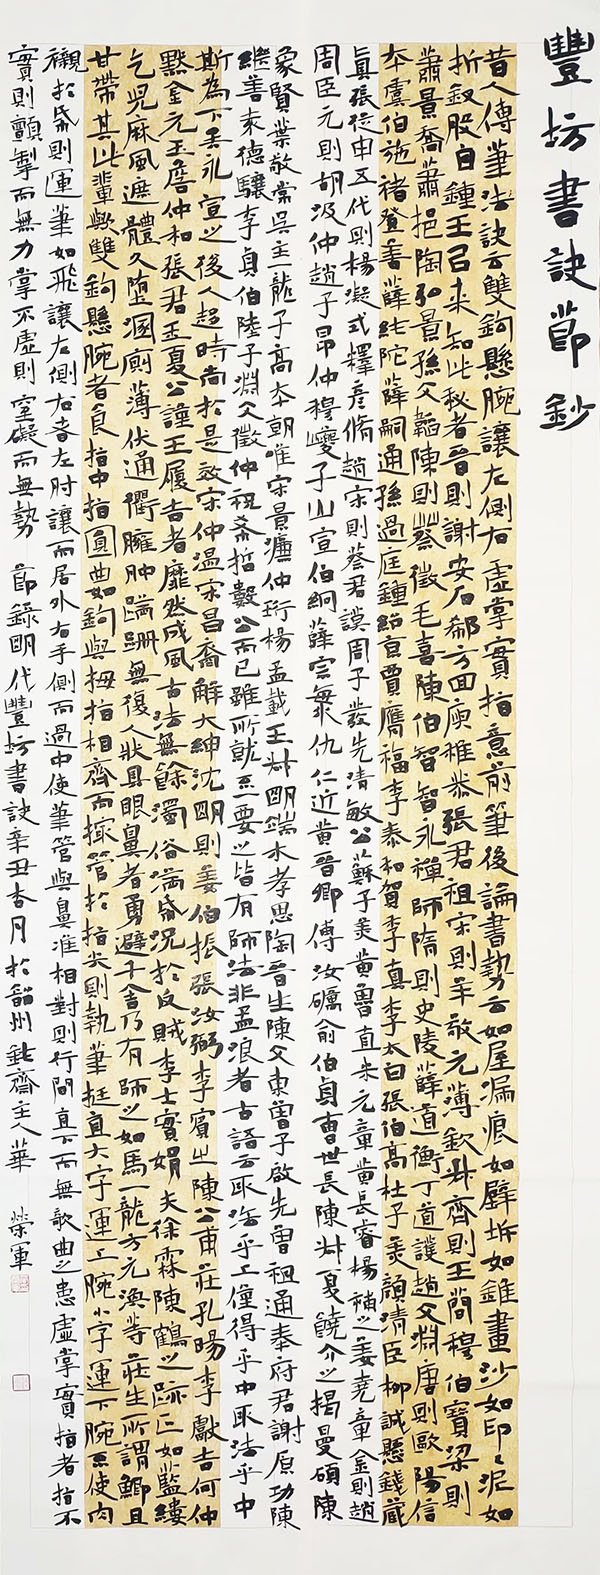 豐坊書訣節鈔
昔人傳筆法訣云雙鉤懸腕讓左側右虛掌實指意前筆後論書勢云如屋漏痕如壁坼如錐畫沙如印印泥如
折釵股自鍾王以來知此秘者晉則謝安石郗方回庾稚恭張君祖宋則羊敬元薄欽叔齊則王簡穆伯寶梁則
蕭景喬蕭挹陶弘景孫文韜陳則蔡徵毛喜陳伯智智永禪師隋則史陵薛道衡丁道護趙文淵唐則歐陽信
本虞伯施褚登善薛純陀薛嗣通孫過庭鍾紹京賈膺福李泰和賀季真李太白張伯高杜子美顏清臣柳誠懸錢藏
真張從申五代則楊凝式釋彥脩趙宋則蔡君謨周子發先清敏公蘇子美黃魯直米元章黃長睿楊補之姜堯章金則趙
周臣元則胡汲仲趙子昂仲穆夔子山宣伯絅薛宗粲仇仁近黃晉卿傅汝礪俞伯貞曹世長陳叔夏饒介之揭曼碩陳
象賢葉敬常吳主一龍子高本朝唯宋景濂仲珩楊孟載王叔明端木孝思陶晉生陳文東曾子啟先曾祖通奉府君謝原功陳
繼善宋德驤李貞伯陸子淵文徵仲祝希哲數公而已雖所就不一要之皆有師法非孟浪者古語云取法乎上僅得乎中取法乎中
斯為下矣永宣之後人趨時尚於是效宋仲溫宋昌裔解大紳沈明則姜伯振張汝弼李賓之陳公甫莊孔暘李獻吉何仲
默金元玉詹仲和張君玉夏公謹王履吉者靡然成風古法無餘濁俗滿紙況於反賊李士實娼夫徐霖陳鶴之跡正如藍縷
乞兒麻風遮體久墮溷廁薄伏通衢臃腫蹣跚無復人狀具眼鼻者勇避千舍乃有師之如馬一龍方元渙等莊生所謂鯽且
甘帶其此輩歟雙鉤懸腕者食指中指圓曲如鉤與拇指相齊而撮管於指尖則執筆挺直大字運上腕小字運下腕不使肉
襯於紙則運筆如飛讓左側右者左肘讓而居外右手側而過中使筆管與鼻準相對則行間直下而無欹曲之患虛掌實指者指不
實則顫掣而無力掌不虛則窒礙而無勢 節錄明代豐坊書訣辛丑杏月於韶州齋主人華榮軍